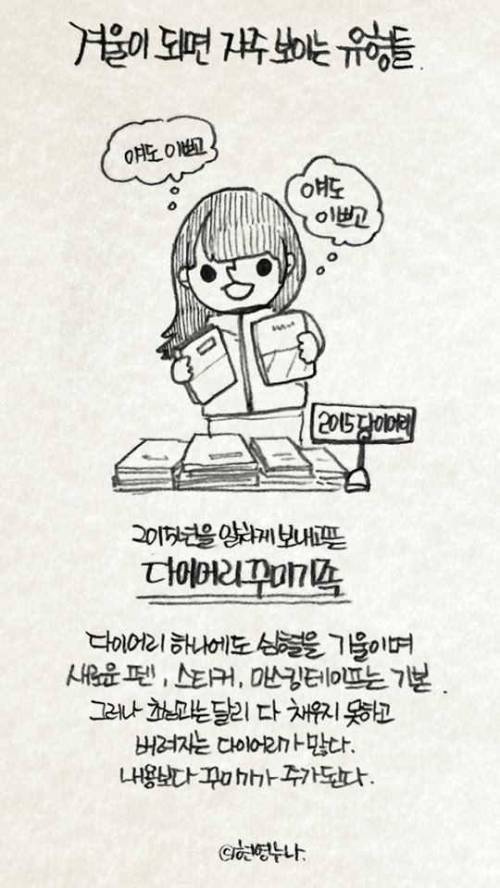 겨울이 되면 자주 보이는 유형들.
얘도 이쁘고
얘도
이쁘고
2015 다이어리
2015년을 알차게 보내고픈
다이어리 꾸미기족
다이어리 하나에도 심혈을 기울이며
새로운 펜, 스티커, 마스킹테이프는 기본.
그러나 초심과는 달리 다 채우지 못하고
버려지는 다이어리가 많다.
내용보다 꾸미기가 주가 된다.
©현영누나.